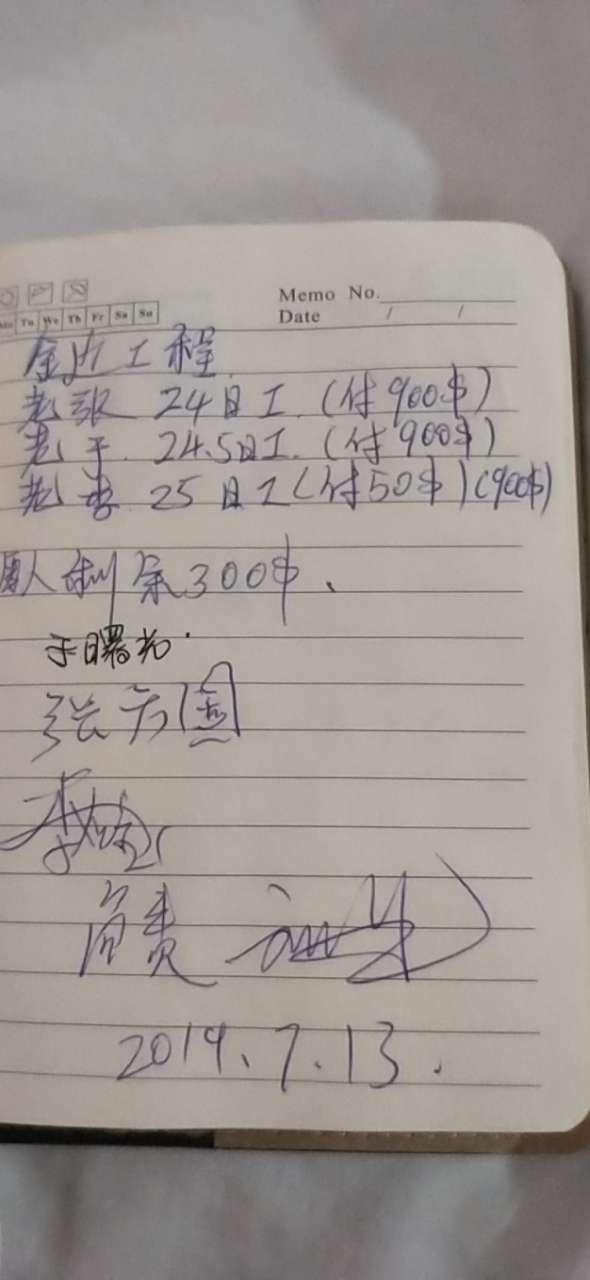 Memo No.
Date / /
Mo Tu We Th Fr Sa Su
工程
老张 24日工.(付900$)
老于. 24.5日工.(付900$)
老李 25日工(付50$)(900$)
人利余300$、
于曙光.
张方国
2019.7.13.